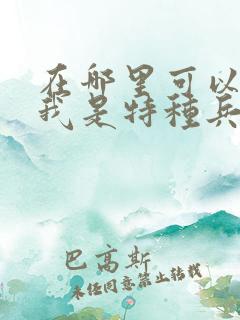 在哪里可以
我是特種兵
巴高斯
未经同意禁止转载